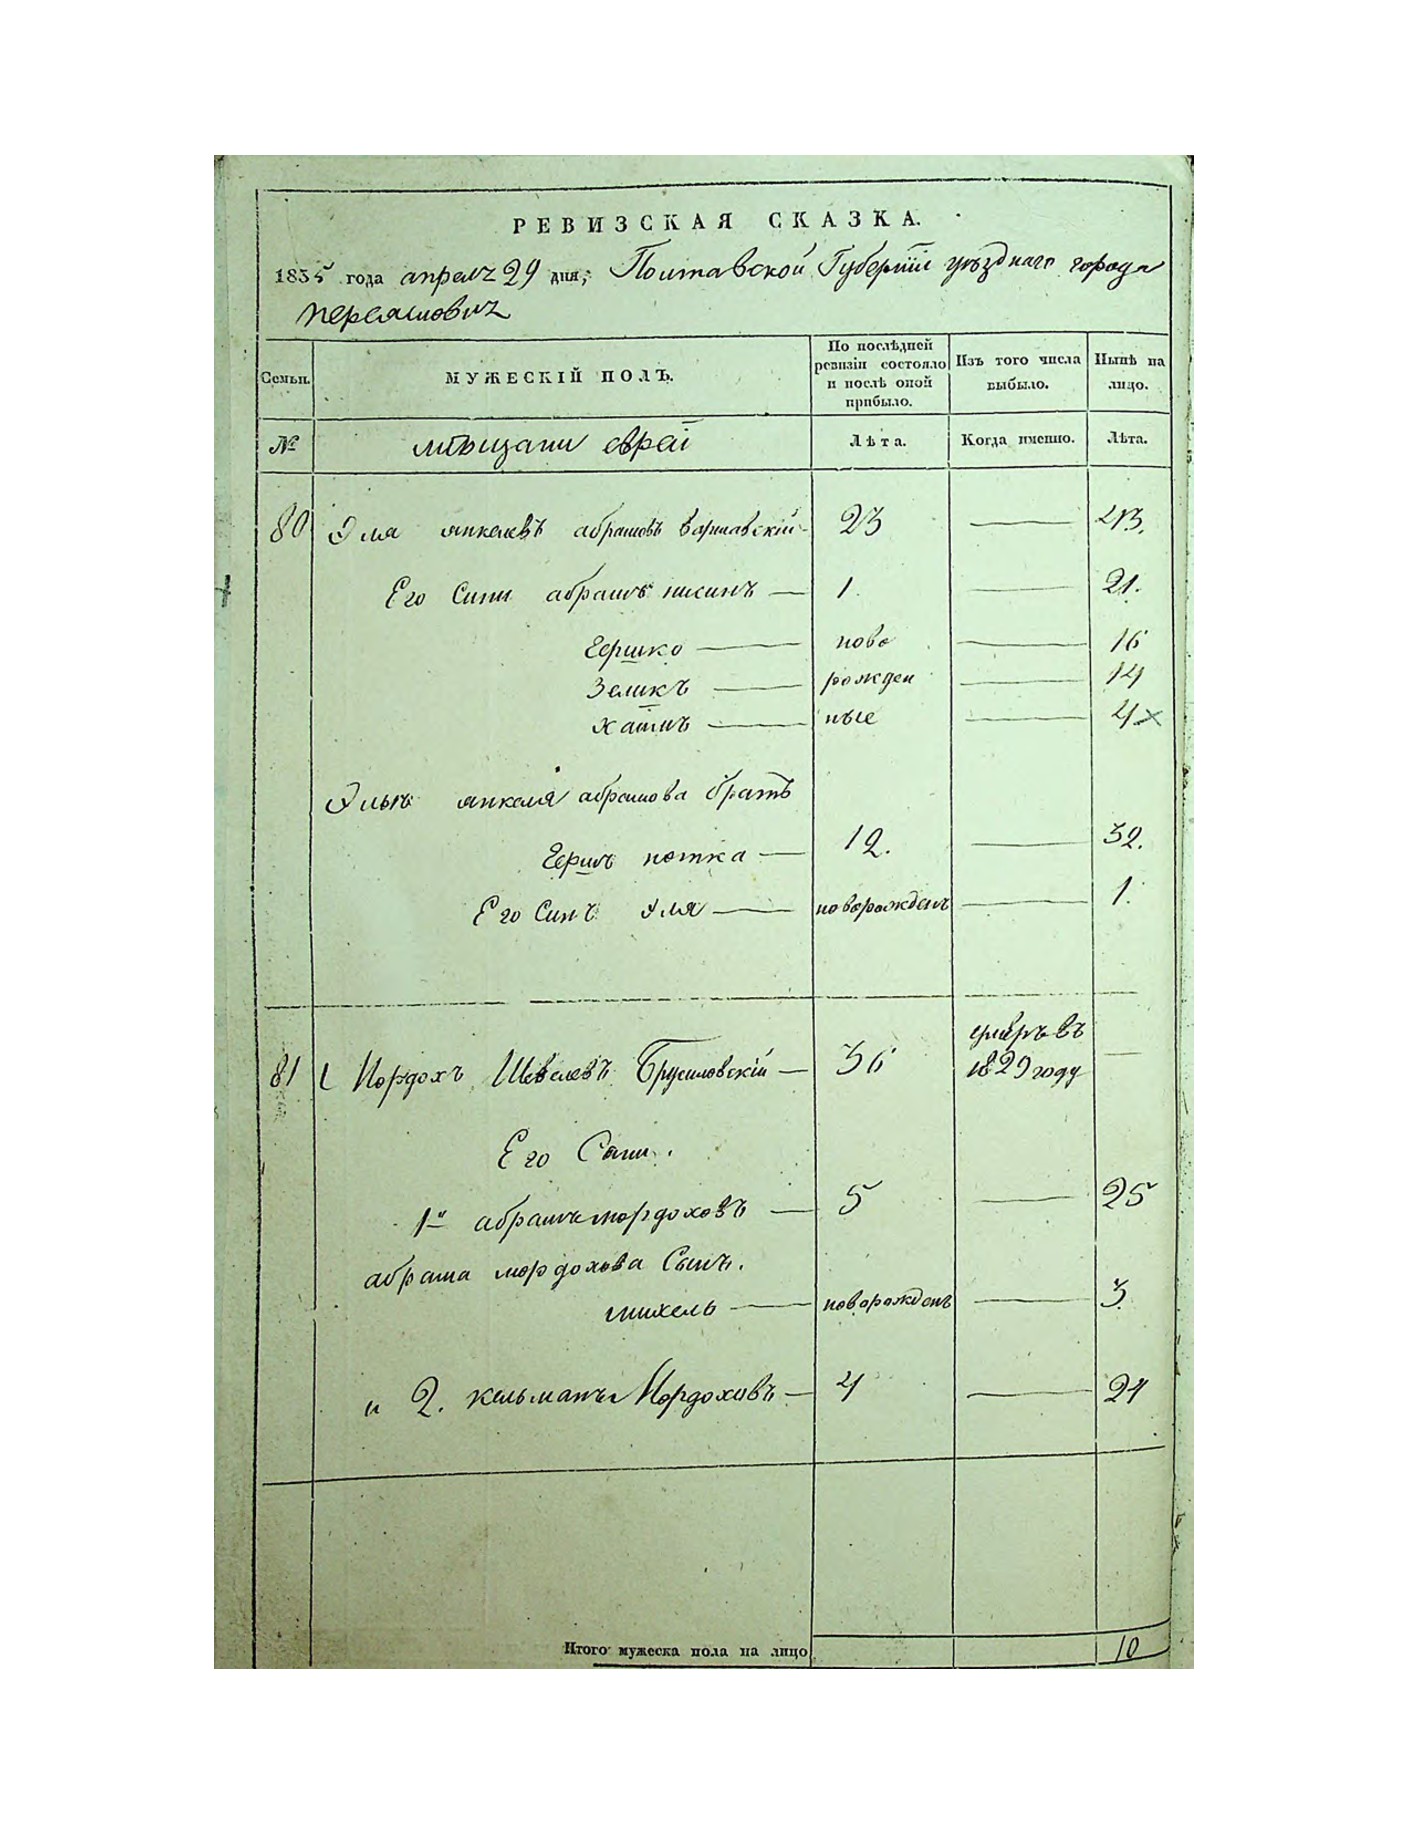 РЕВИЗСКАЯ СКАЗКА.
1835 года апреля 29 дня, Полтавской Губерніи уѣзднаго города
Переяславля
Семьи.
МУЖЕСКІЙ ПОЛЪ.
По послѣдней ревизіи состояло и послѣ оной прибыло.
Изъ того числа выбыло.
Нынѣ на лицо.
№ мѣщани евреи Лѣта. Когда именно. Лѣта.
80 Эля янкелевъ абрамовъ Варшавскій 23 — 43.
Его Сини абрамъ нисинъ — 1. — 21.
Гершко — ново — 16
Зеликъ — рожден — 14
хаимъ — ные — 4 x
Эльи янкеля абрамова братъ
Гершъ нотка — 12. — 32.
Его Синъ Эля — новорожденъ — 1.
81 Мордохъ Шевелевъ Брусиловскій — 36 умеръ въ 1829 году —
Его Сыни.
1й абрамъ мордоховъ — 5 — 25
абрама мордохова Сынъ.
михель — новорожденъ — 3.
и 2. кельманъ Мордоховъ — 4 — 24
Итого мужеска пола на лицо 10